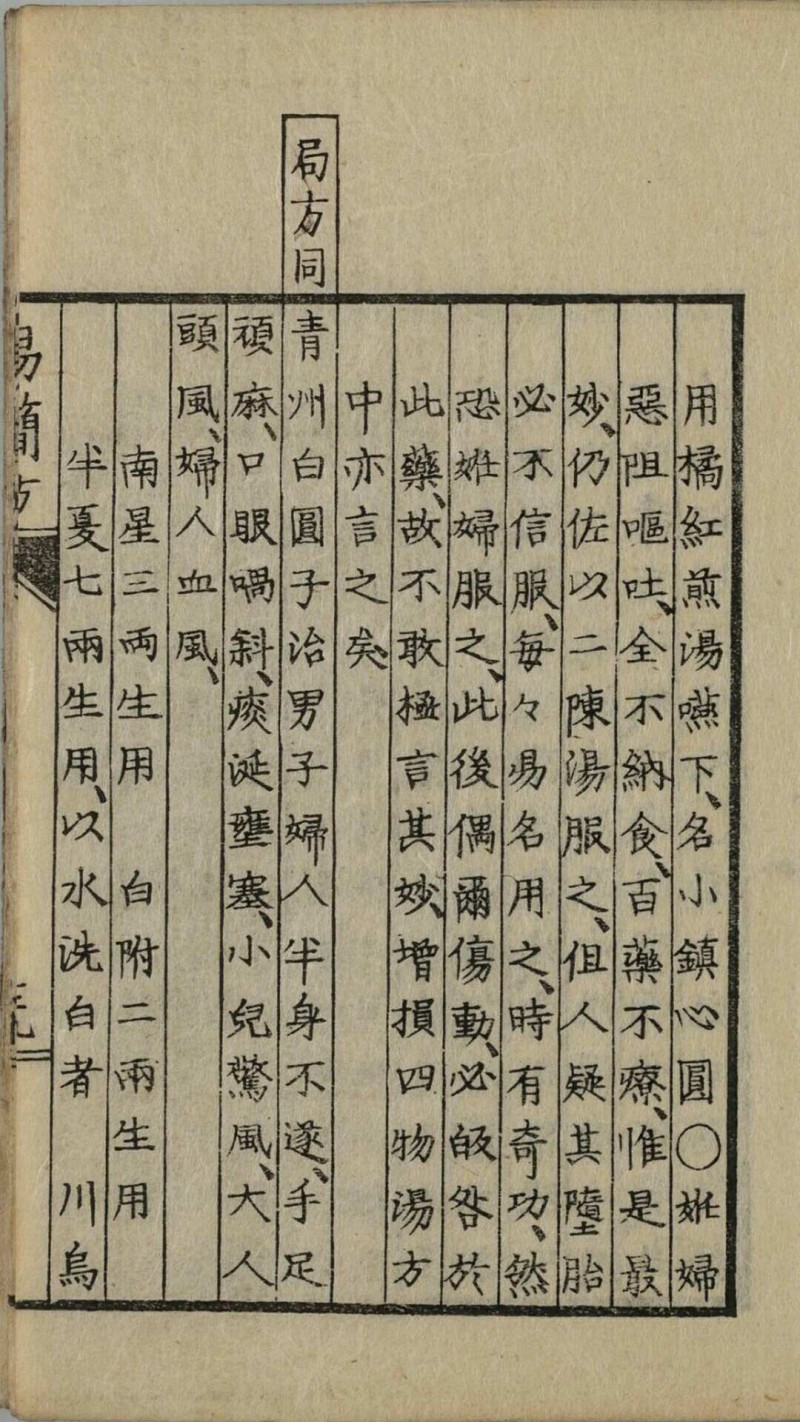 用橘紅煎湯嚥下、名小鎮心圓〇姙婦
惡阻嘔吐、全不納食、百藥不療、惟是最
妙、仍佐以二陳湯服之、但人疑其墮胎
必不信服、每々易名用之、時有奇功、然
恐姙婦服之、此後偶爾傷動、必皈咎於
此藥、故不敢極言其妙、增損四物湯方
中亦言之矣、
局方同
青州白圓子治男子婦人半身不遂、手足
頑麻、口眼喎斜、痰涎壅塞、小兒驚風、大人
頭風、婦人血風、
南星三両生用 白附二兩生用
半夏七兩生用、以水洗白者 川烏
易簡方